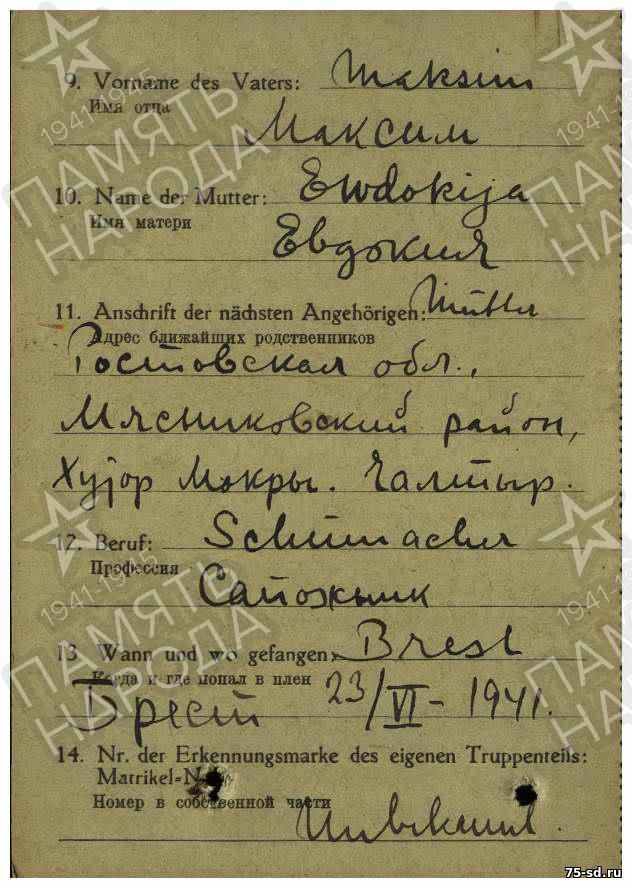 9. Vorname des Vaters: Maksim
Имя отца
Максим
10. Name der Mutter: Ewdokija
Имя матери
Евдокия
11. Anschrift der nächsten Angehörigen: Mutter
Адрес ближайших родственников
Ростовская обл.,
Мясниковский район,
Хутор Мокры. Чалтыр.
12. Beruf: Schumacher
Профессия
Сапожник
13. Wann und wo gefangen: Brest
Когда и где попал в плен
Брест 23/VI - 1941.
14. Nr. der Erkennungsmarke des eigenen Truppenteils:
Matrikel-N
Номер в собственной части
ПАМЯТЬ НАРОДА
1941-1945
75-sd.ru